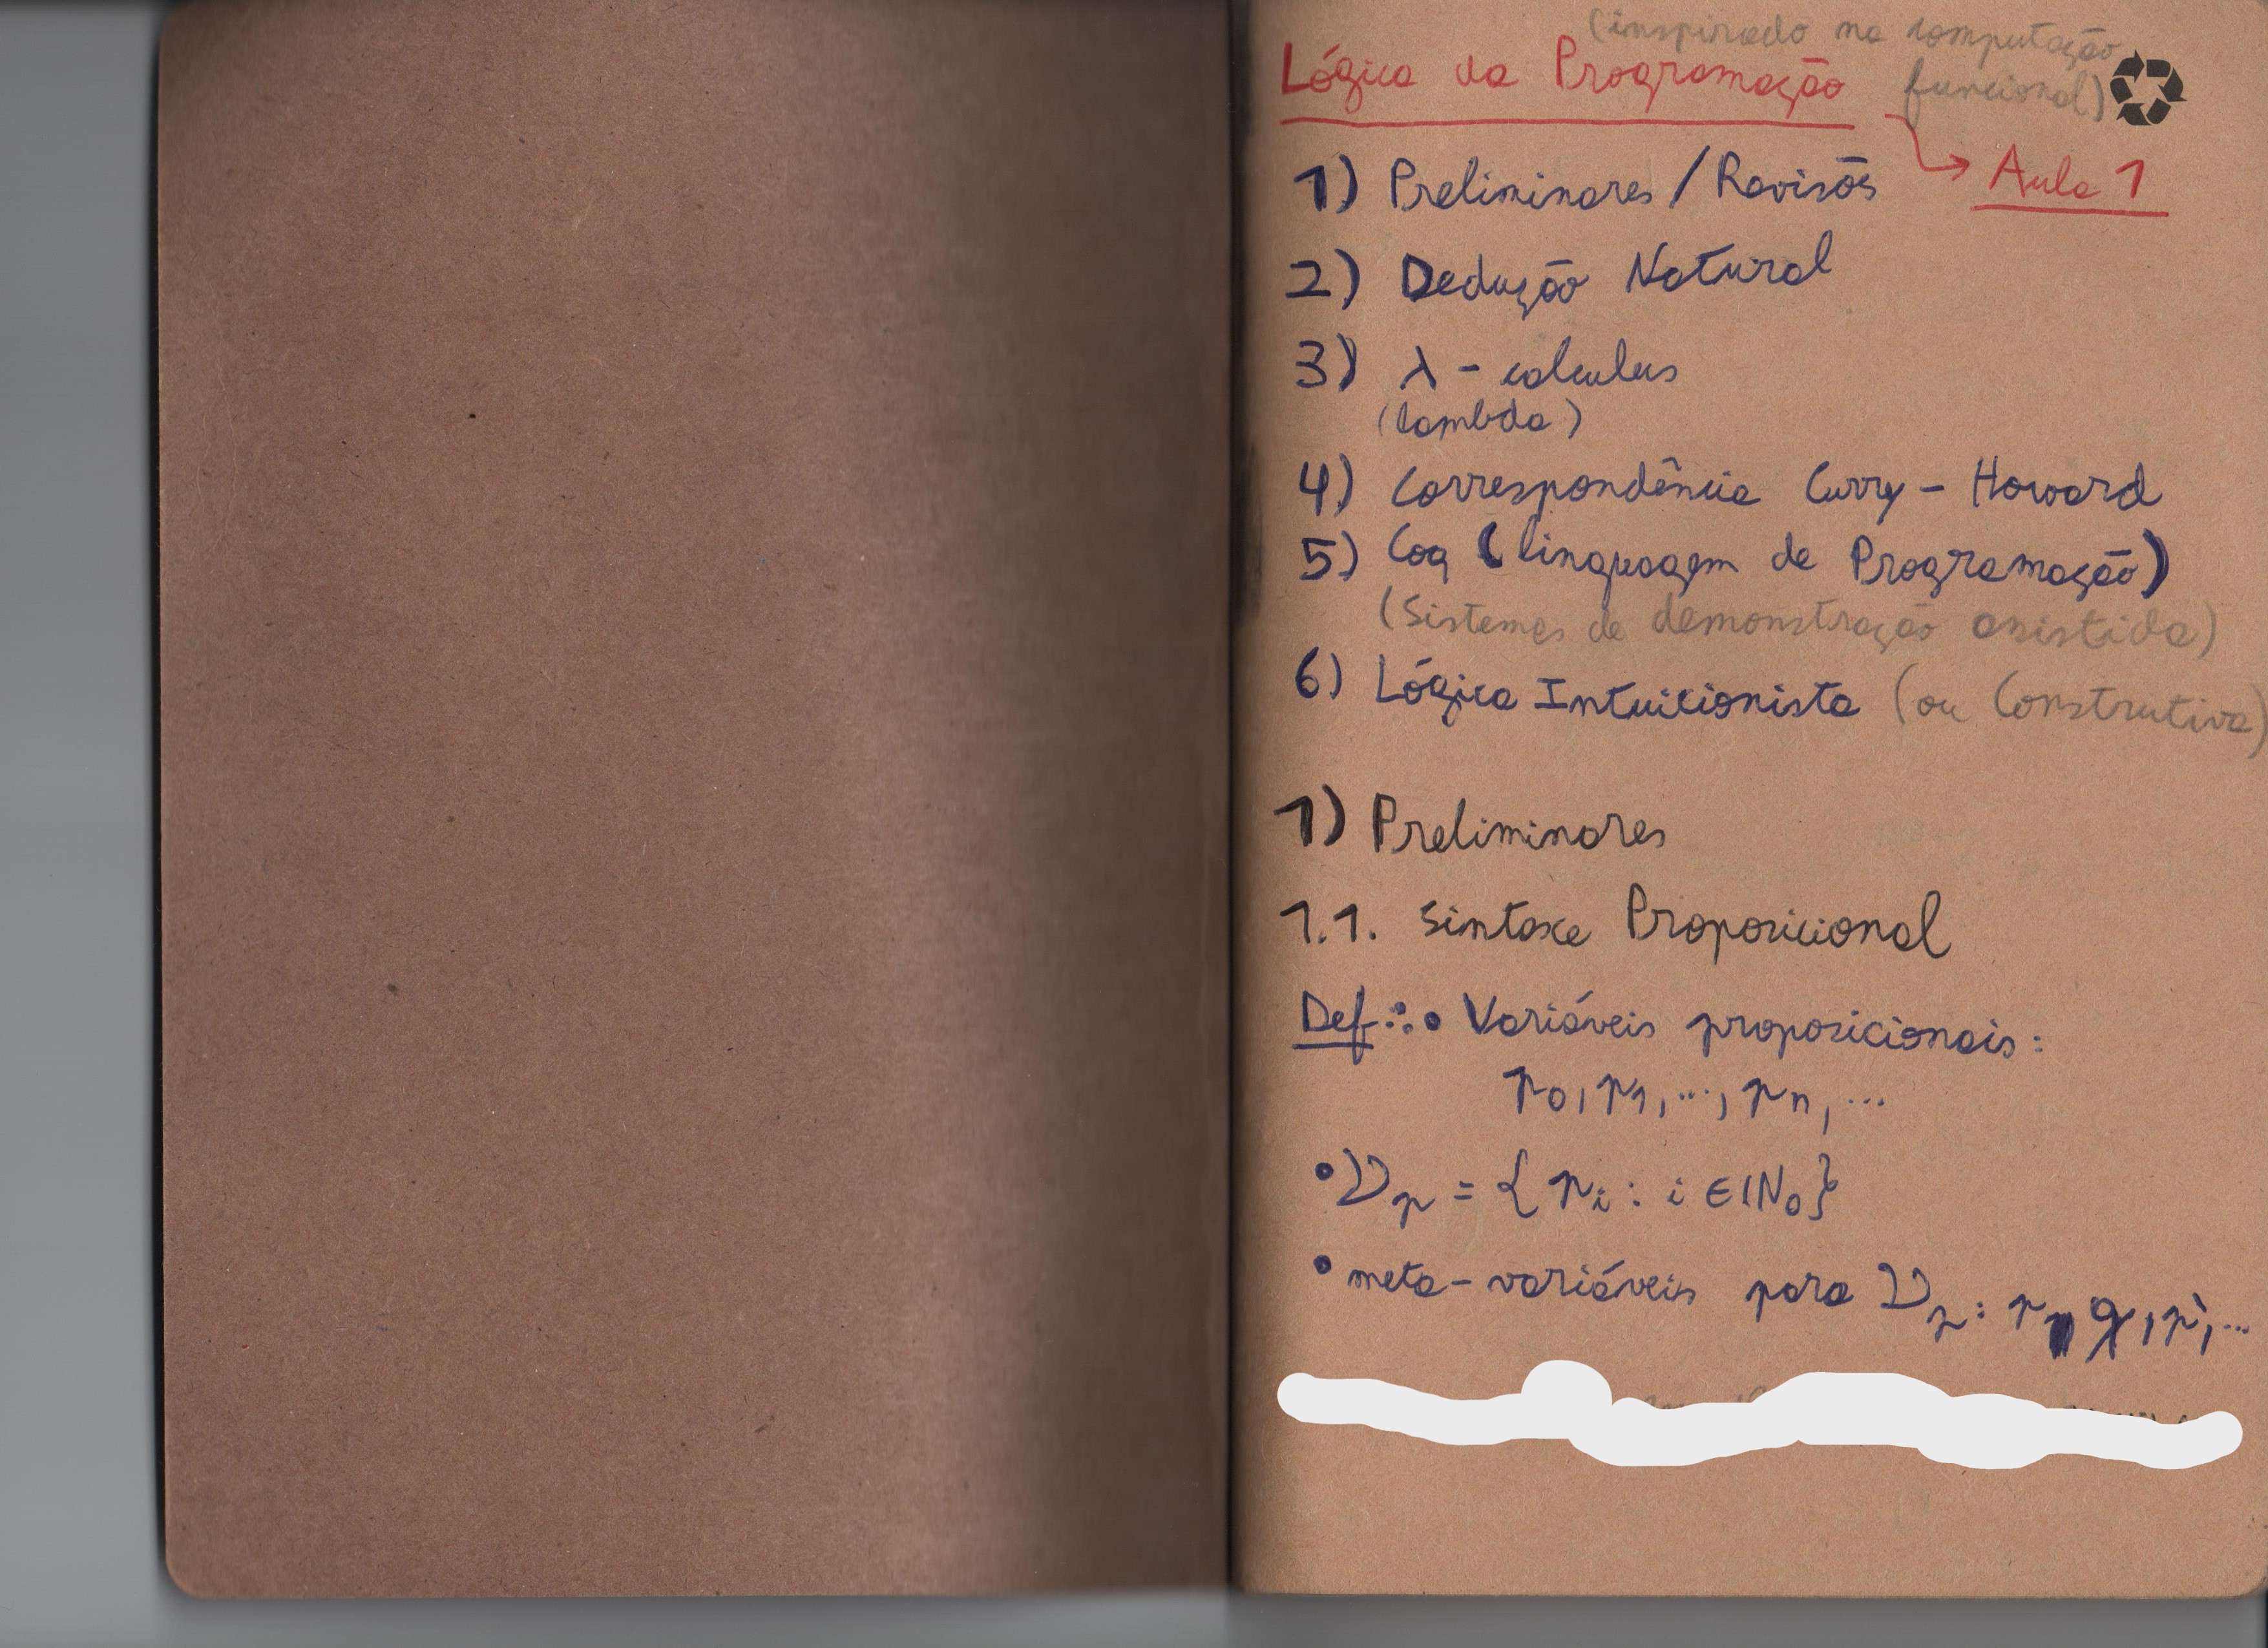 (inspirado na computação
funcional)
Lógica da Programação
→ Aula 1
1) Preliminares / Revisões
2) Dedução Natural
3) λ - calculus
(lambda)
4) Correspondência Curry - Howard
5) Coq (linguagem de Programação)
(Sistemas de demonstração assistida)
6) Lógica Intuicionista (ou Construtiva)
1) Preliminares
1.1. Sintaxe Proposicional
Def.: • Variáveis proposicionais:
p0, p1, ..., pn, ...
• Vp = {pi : i ∈ ℕ0}
• meta-variáveis para Vp: p, q, p', ...